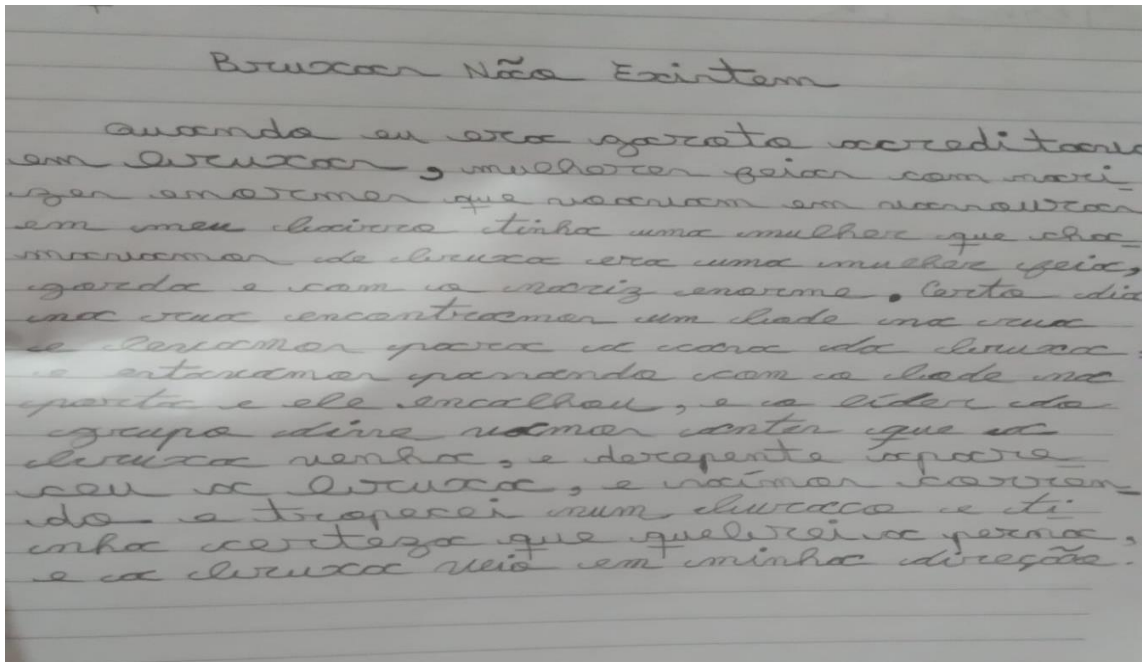 Bruxas Não Existem
Quando eu era garoto acreditava
em bruxas, mulheres feias com nari-
zes enormes que voavam em vassouras
em meu bairro tinha uma mulher que cha-
mavamos de bruxa era uma mulher feia,
gorda e com o nariz enorme. Certo dia
na rua encontramos um bode na rua
e levamos para a casa da bruxa.
e estavamos passando com o bode na
porta e ele encalhou, e o lider do
grupo disse vamos antes que a
bruxa venha, e derepente apare-
ceu a bruxa, e saímos corren-
do e tropecei num buraco e ti
nha certeza que quebrei a perna,
e a bruxa veio em minha direção.